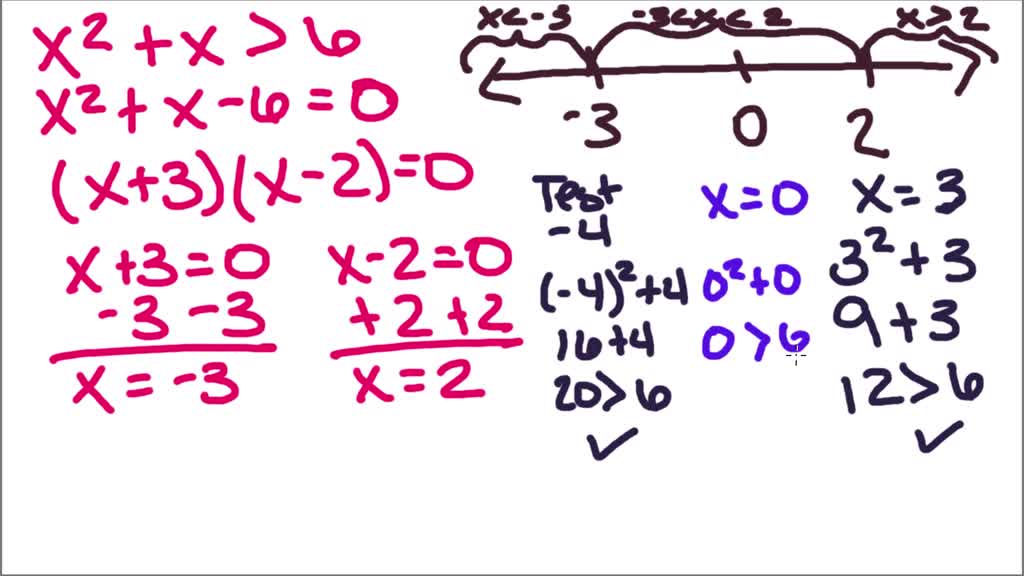 x² + x > 6
x² + x - 6 = 0
(x+3)(x-2)=0
x+3=0
-3 -3
x = -3
x-2=0
+2 +2
x = 2
x<-3 -3<x<2 x>2
-3 0 2
Test
-4
(-4)²+4
16+4
20>6
✓
x=0
0²+0
0>6
x=3
3²+3
9+3
12>6
✓